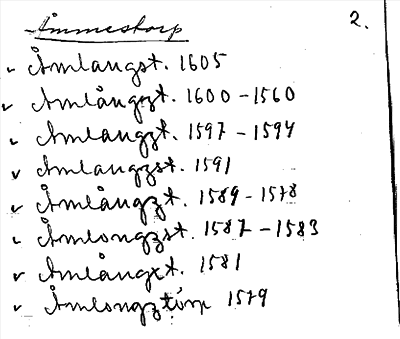 Åmmestorp 2.
Åmlangst. 1605
Åmlångzt. 1600-1560
Amlangzt. 1597-1594
Amlangzst. 1591
Åmlångzt. 1589-1578
Åmlongzst. 1587-1583
Amlångxt. 1581
Åmlongztörp 1579